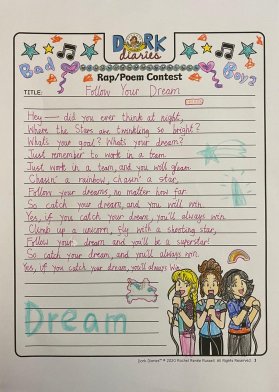 DORK
diaries
Bad Boyz
Rap/Poem Contest
TITLE: Follow Your Dream
Hey — did you ever think at night,
Where the Stars are twinkling so bright?
Whats your goal? Whats your dream?
Just remember to work in a team
Just work in a team, and you will gleam.
Chasin' a rainbow, chasin' a star,
Follow your dreams, no matter how far.
So catch your dream, and you will win.
Yes, if you catch your dream, you'll always win.
Climb up a unicorn, fly with a shooting star,
Follow your dream and you'll be a superstar!
So catch your dream, and you'll always win.
Yes, if you catch your dream, you'll always win.
Dream
Dork Diaries™ © 2020 Rachel Renée Russell. All Rights Reserved. 3